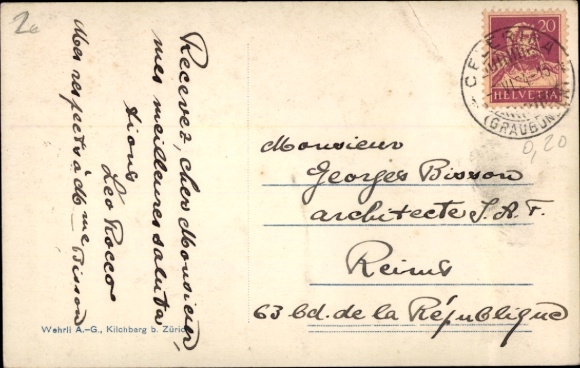 2e
Recevez, cher Monsieur,
mes meilleures saluta
tions
Leo Rocco
Mes respects à Mme Bisson
Wehrli A.-G., Kilchberg b. Zürich
20
HELVETIA
CELERINA
(GRAUBÜNDEN)
0,20
Monsieur
Georges Bisson
architecte S.A.F.
Reims
63 bd. de la République